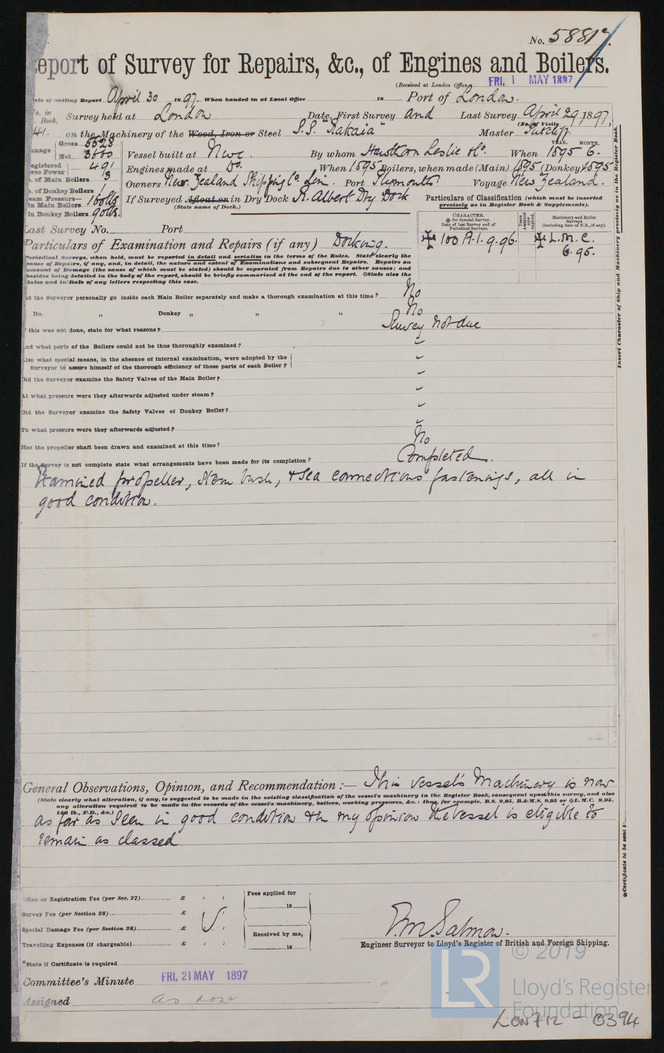 No. 58817.
eport of Survey for Repairs, &c., of Engines and Boilers.
(Received at London Office FRI. MAY 1897
ate of writing Report April 30 1897. When handed in at Local Office 18 Port of London.
No. in Book. Survey held at London Date, First Survey and Last Survey April 29 1897.
(No. of Visits
41. on the Machinery of the Wood, Iron or Steel S.S. "Rakaia" Master Sutcliff.
Gross 5628
Net 3660
Vessel built at Nwc. By whom Hawthorn Leslie & Co. When YEAR. 1895 MONTH. 6.
egistered 491
rse Power
Engines made at Do. When 1895 Boilers, when made (Main) 1895 (Donkey) 1895
. of Main Boilers 3
. of Donkey Boilers
Owners New Zealand Shipping Co. Lim. Port Plymouth Voyage New Zealand.
eam Pressure—
in Main Boilers 160lbs
in Donkey Boilers 90lbs.
If Surveyed Afloat or in Dry Dock R. Albert Dry Dock
(State name of Dock.)
Particulars of Classification (which must be inserted precisely as in Register Book & Supplements).
CHARACTER.
for Special Survey.
Date of last Survey and of Periodical Surveys.
Machinery and Boiler Surveys
(including date of N.B., if any).
✠ 100 A.1. 9.96. ✠ L.M.C. 6.95.
Last Survey No. Port
Particulars of Examination and Repairs (if any) Docking.
Periodical Surveys, when held, must be reported in detail and seriatim in the terms of the Rules. State clearly the
cause of Repairs, if any, and, in detail, the nature and extent of Examinations and subsequent Repairs. Repairs on
account of Damage (the cause of which must be stated) should be separated from Repairs due to other causes; and
besides being detailed in the body of the report, should be briefly summarised at the end of the report. State also the
dates and initials of any letters respecting this case.
id the Surveyor personally go inside each Main Boiler separately and make a thorough examination at this time? No
Do. Donkey „ „ „ No
f this was not done, state for what reasons? Survey not due
nd what parts of the Boilers could not be thus thoroughly examined? "
lso what special means, in the absence of internal examination, were adopted by the
Surveyor to assure himself of the thorough efficiency of those parts of each Boiler? "
Did the Surveyor examine the Safety Valves of the Main Boiler? "
At what pressure were they afterwards adjusted under steam? "
Did the Surveyor examine the Safety Valves of Donkey Boiler? "
To what pressure were they afterwards adjusted? "
Has the propeller shaft been drawn and examined at this time? No
If the Survey is not complete state what arrangements have been made for its completion? Completed.
Examined propeller, stern bush, & sea connections fastenings, all in
good condition.
General Observations, Opinion, and Recommendation:— This vessel's Machinery is now
(State clearly what alteration, if any, is suggested to be made in the existing classification of the vessel's machinery in the Register Book, consequent upon this survey, and also
any alteration required to be made in the records of the vessel's machinery, boilers, working pressures, &c.: thus, for example, B.S. 9,95, B.&M.S. 9,95 or ✠L.M.C. 9,95,
160 lb., F.D., &c.)
as far as seen in good condition & in my opinion the vessel is eligible to
remain as classed
Office or Registration Fee (per Sec. 27) £
Survey Fee (per Section 28) £
Special Damage Fee (per Section 28) £
Travelling Expenses (if chargeable) £
Fees applied for
18
Received by me,
18
P.M. Salmon.
Engineer Surveyor to Lloyd's Register of British and Foreign Shipping.
*State if Certificate is required
Committee's Minute FRI. 21 MAY 1897
Assigned as now
Insert Character of Ship and Machinery precisely as in the Register Book.
*Certificate to be sent t
LR
© 2019
Lloyd's Register
Foundation
LON712 - 0394